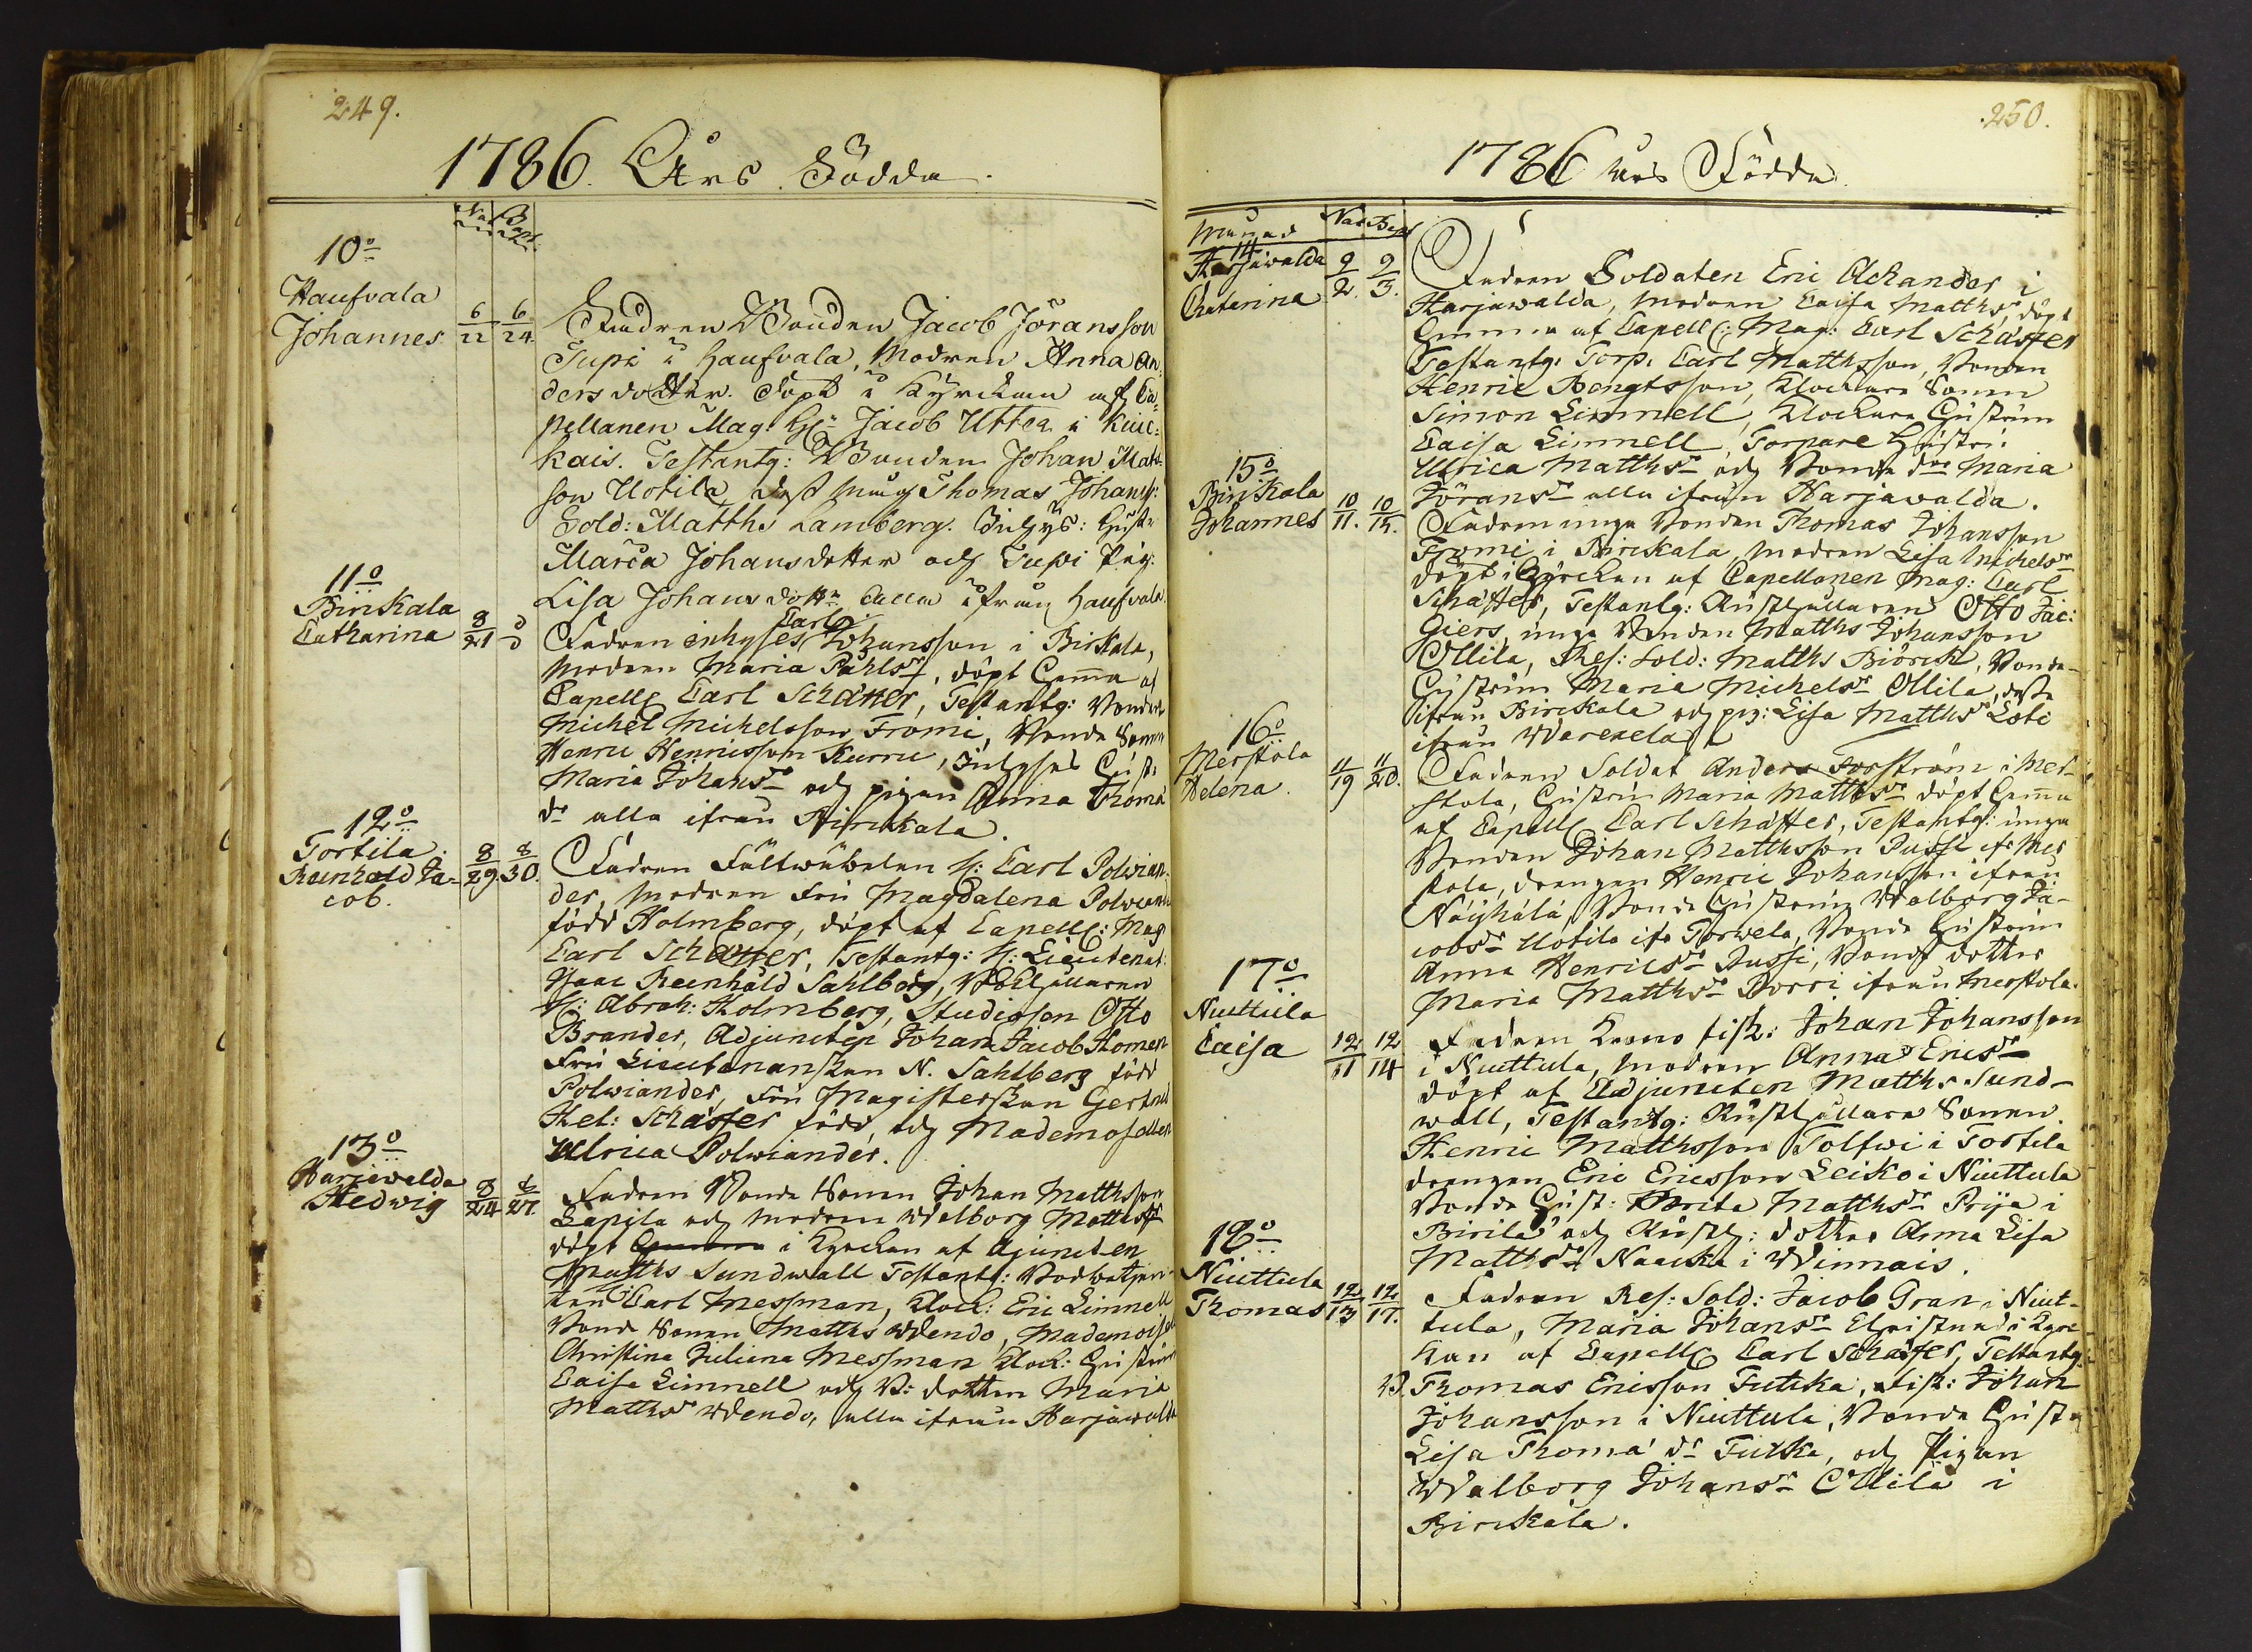 249.
1786. Års Födda.
Nat Bapt.
10o
Haufvala
Johannes 6/22 6/24
Fadren Bonden Jacob Jöransson
Tupi i Haufvala, Modren Anna An=
dersdotter. Döpt i Kyrckan af Ca=
pellanen Mag: Jacob Utter i Kiuc=
kais. Testantg: Bonden Johan Matts
son Uotila, Thomas Johanss:
Sold: Matths Lamberg. Inhys: Hustr
Maria Johansdotter och Tupi Pig:
Lisa Johans dottr alla ifrån Haufvala.
11o
Birckala
Catharina 8/21
Fadren inhyses Carl Johansson i Birkala,
Modren Maria Påhlsdr, döpt hemma af
Capell: Carl Schäffer, Testantg: Bonden
Michel Michelsson Fromi, Bonde Sonen
Henric Henricsson Kurru, Inhyses Hust:
Maria Johansdr och pigan Anna Thomæ
dr alla ifrån Birckala.
12o
Torttila
Reinhold Ja=
cob. 8/29. 8/30.
Fadren Fältwäbelen H: Carl Polvian=
der, Modren Fru Magdalena Polviander
född Holmberg, döpt af Capell: Mag
Carl Schäffer, Testantg: H: Lieutenat:
Isaac Reinhåld Sahlberg,
H: Abrah: Holmberg, Studiosen Otto
Brander, Adjuncten Johan Jacob Homen
Fru Lieutenanskan N. Sahlberg född
Polwiander, Fru Magisterskan Gertrud
Hel: Schäffer född, och Mademosellen
Ulrica Polwiander.
13o
Harjawalda
Hedwig 8/24 8/27.
Fadren Bonde Sonen Johan Matthsson
Lapila och modren Walborg Matthsdr
döpt i Kyrckan af Adjuncten
Matths Sundwall Testantg:
Carl Messman, Klock: Eric Limnell
Bonde Sonen Matths Wendo, Mademoisell
Christina Juliana Messman Klock: Hustrun
Caisa Limnell och B: dottren Maria
Matthsdr Wendo, alla ifrån Harjawalda
250.
1786 års Födda
Nat Bapt
14
Harjawalda
Chaterina 9/2. 9/3.
Fadren Soldaten Eric Ackander i
Harjawalda, Modren Caisa Matthsdr, döpt
hemma af Capell: Mag: Carl Schäffer
Testantg: Torp: Carl Matthsson, Bonden
Henric Bengtsson, Klockare Sonen
Simon Limnell, Klockare Hustrun
Caisa Limnell, Torpare Hustru:
Ulrica Matthsdr och Bonde dr Maria
Jöransdr alla ifrån Harjawalda.
15o
Birckala
Johannes 10/11. 10/15.
Fadren unga Bonden Thomas Johansson
Fromi i Birckala, modren Lisa Michelsdr
döpt i Kyrckan af Capellanen Mag: Carl
Schäffer, Testantg: Rusthållaren Otto Jac:
Giers, unga Bonden Matths Johansson
Ollila, Res: Sold: Matths Biörck, Bonde
Hustrun Maria Michelsdr Ollila, desse
ifrån Birckala och pig: Lisa Matthsdr Loti
ifrån Warekela
16o
Merstola
Helena. 11/19 11/20.
Fadren Soldat Anders Forsström i Mer=
stola, Hustrun Maria Matthsdr döpt hemma
af Capell: Carl Schäffer, Testantg: unga
Bonden Johan Matthsson Pussi ifr Mer
stola, drengen Henric Johansson ifrån
Näyhälä, Bonde Hustrun Walborg Ja=
cobsdr Uotila ifr Torwela, Bonde Hustrun
Anna Henricsdr Pussi, Bonde dotter
Maria Matthsdr Porri ifrån Merstola.
17o
Niuttula
Caisa 12/11 12/14
Fadren Krono fisk: Johan Johansson
i Niuttula, modren Anna Ericsdr
döpt af Adjuncten Matths Sund=
wall, Testantg: Rusthållare Sonen
Henric Matthsson Tolfwi i Torttila
drengen Eric Ericsson Leiko i Niuttula
Bonde Hust: Brita Matthsdr Prija i
Birilä och Rusth: dotter Anna Lisa
Matthsdr Naucka i Winnais.
18o
Niuttula
Thomas 12/13 12/17.
Fadren Res: Sold: Jacob Gran i Niut=
tula, Maria Johansdr Christnad i Kyrc
kan af Capell: Carl Schäffer, Testantg:
B. Thomas Ericsson Tutcka, fisk: Johan
Johansson i Niuttula, Bonde Hustr
Lisa Thomæ dr Tutka, och Pigan
Walborg Johansdr Ollila i
Birckala.